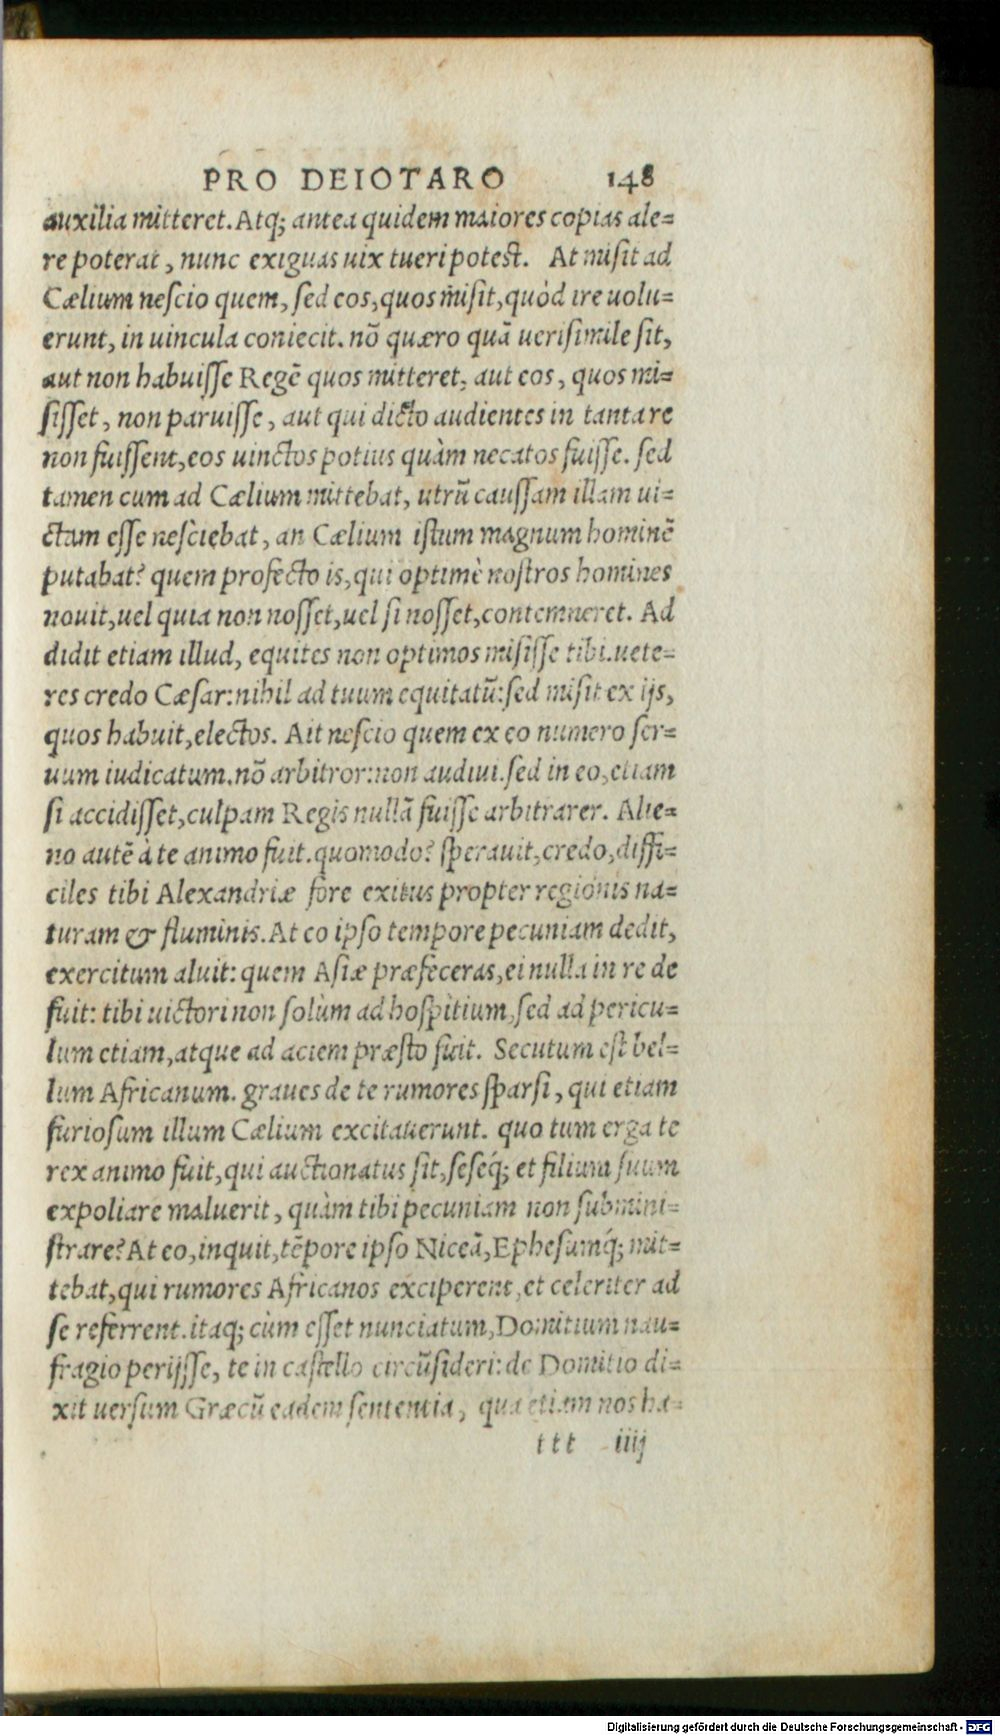 PRO DEIOTARO 148
auxilia mitteret. Atq; antea quidem maiores copias ale=
re poterat, nunc exiguas uix tueri potest. At misit ad
Cælium nescio quem, sed eos, quos misit, quòd ire uolu=
erunt, in uincula coniecit. nō quæro quā uerisimile sit,
aut non habuisse Regē quos mitteret, aut eos, quos mi=
sisset, non paruisse, aut qui dicto audientes in tanta re
non fuissent, eos uinctos potius quàm necatos fuisse. sed
tamen cum ad Cælium mittebat, utrū caussam illam ui=
ctam esse nesciebat, an Cælium istum magnum hominē
putabat? quem profecto is, qui optimè nostros homines
nouit, uel quia non nosset, uel si nosset, contemneret. Ad
didit etiam illud, equites non optimos misisse tibi. uete=
res credo Cæsar: nihil ad tuum equitatū: sed misit ex ijs,
quos habuit, electos. Ait nescio quem ex eo numero ser=
uum iudicatum. nō arbitror: non audiui. sed in eo, etiam
si accidisset, culpam Regis nullā fuisse arbitrarer. Alie=
no autē à te animo fuit. quomodo? sperauit, credo, diffi=
ciles tibi Alexandriæ fore exitus propter regionis na=
turam & fluminis. At eo ipso tempore pecuniam dedit,
exercitum aluit: quem Asiæ præfeceras, ei nulla in re de
fuit: tibi uictori non solùm ad hospitium, sed ad pericu=
lum etiam, atque ad aciem præsto fuit. Secutum est bel=
lum Africanum. graues de te rumores sparsi, qui etiam
furiosum illum Cælium excitauerunt. quo tum erga te
rex animo fuit, qui auctionatus sit, seseq́; et filium suum
expoliare maluerit, quàm tibi pecuniam non submini=
strare? At eo, inquit, tēpore ipso Niceā, Ephesumq́; mit=
tebat, qui rumores Africanos exciperent, et celeriter ad
se referrent. itaq; cùm esset nunciatum, Domitium nau=
fragio perijsse, te in castello circūsideri: de Domitio di=
xit uersum Græcū eadem sententia, qua etiam nos ha=
ttt iiij
Digitalisierung gefördert durch die Deutsche Forschungsgemeinschaft - DFG